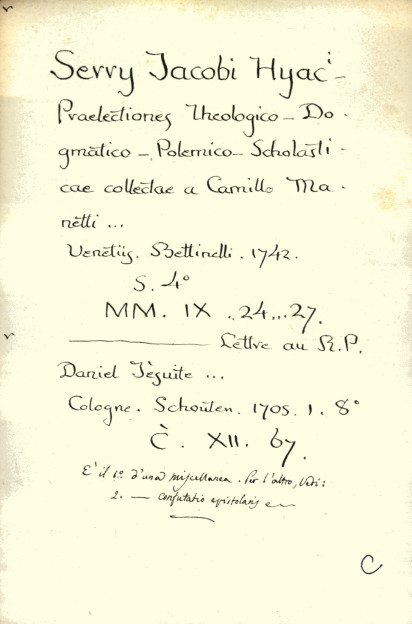 Serry Jacobi Hyaci-
Praelectiones Theologico - Do-
gmatico - Polemico - Scholasti-
cae collectae a Camillo Ma-
netti ...
Venetiis. Bettinelli. 1742.
S. 4°
MM. IX . 24...27.
Lettre au R.P.
Daniel Jèsuite ...
Cologne. Schouten. 1705. 1. 8°
C. XII. 67.
E' il 1.° d'una miscellanea. Per l'altro, Vedi:
2. — Confutatio epistolaris
C